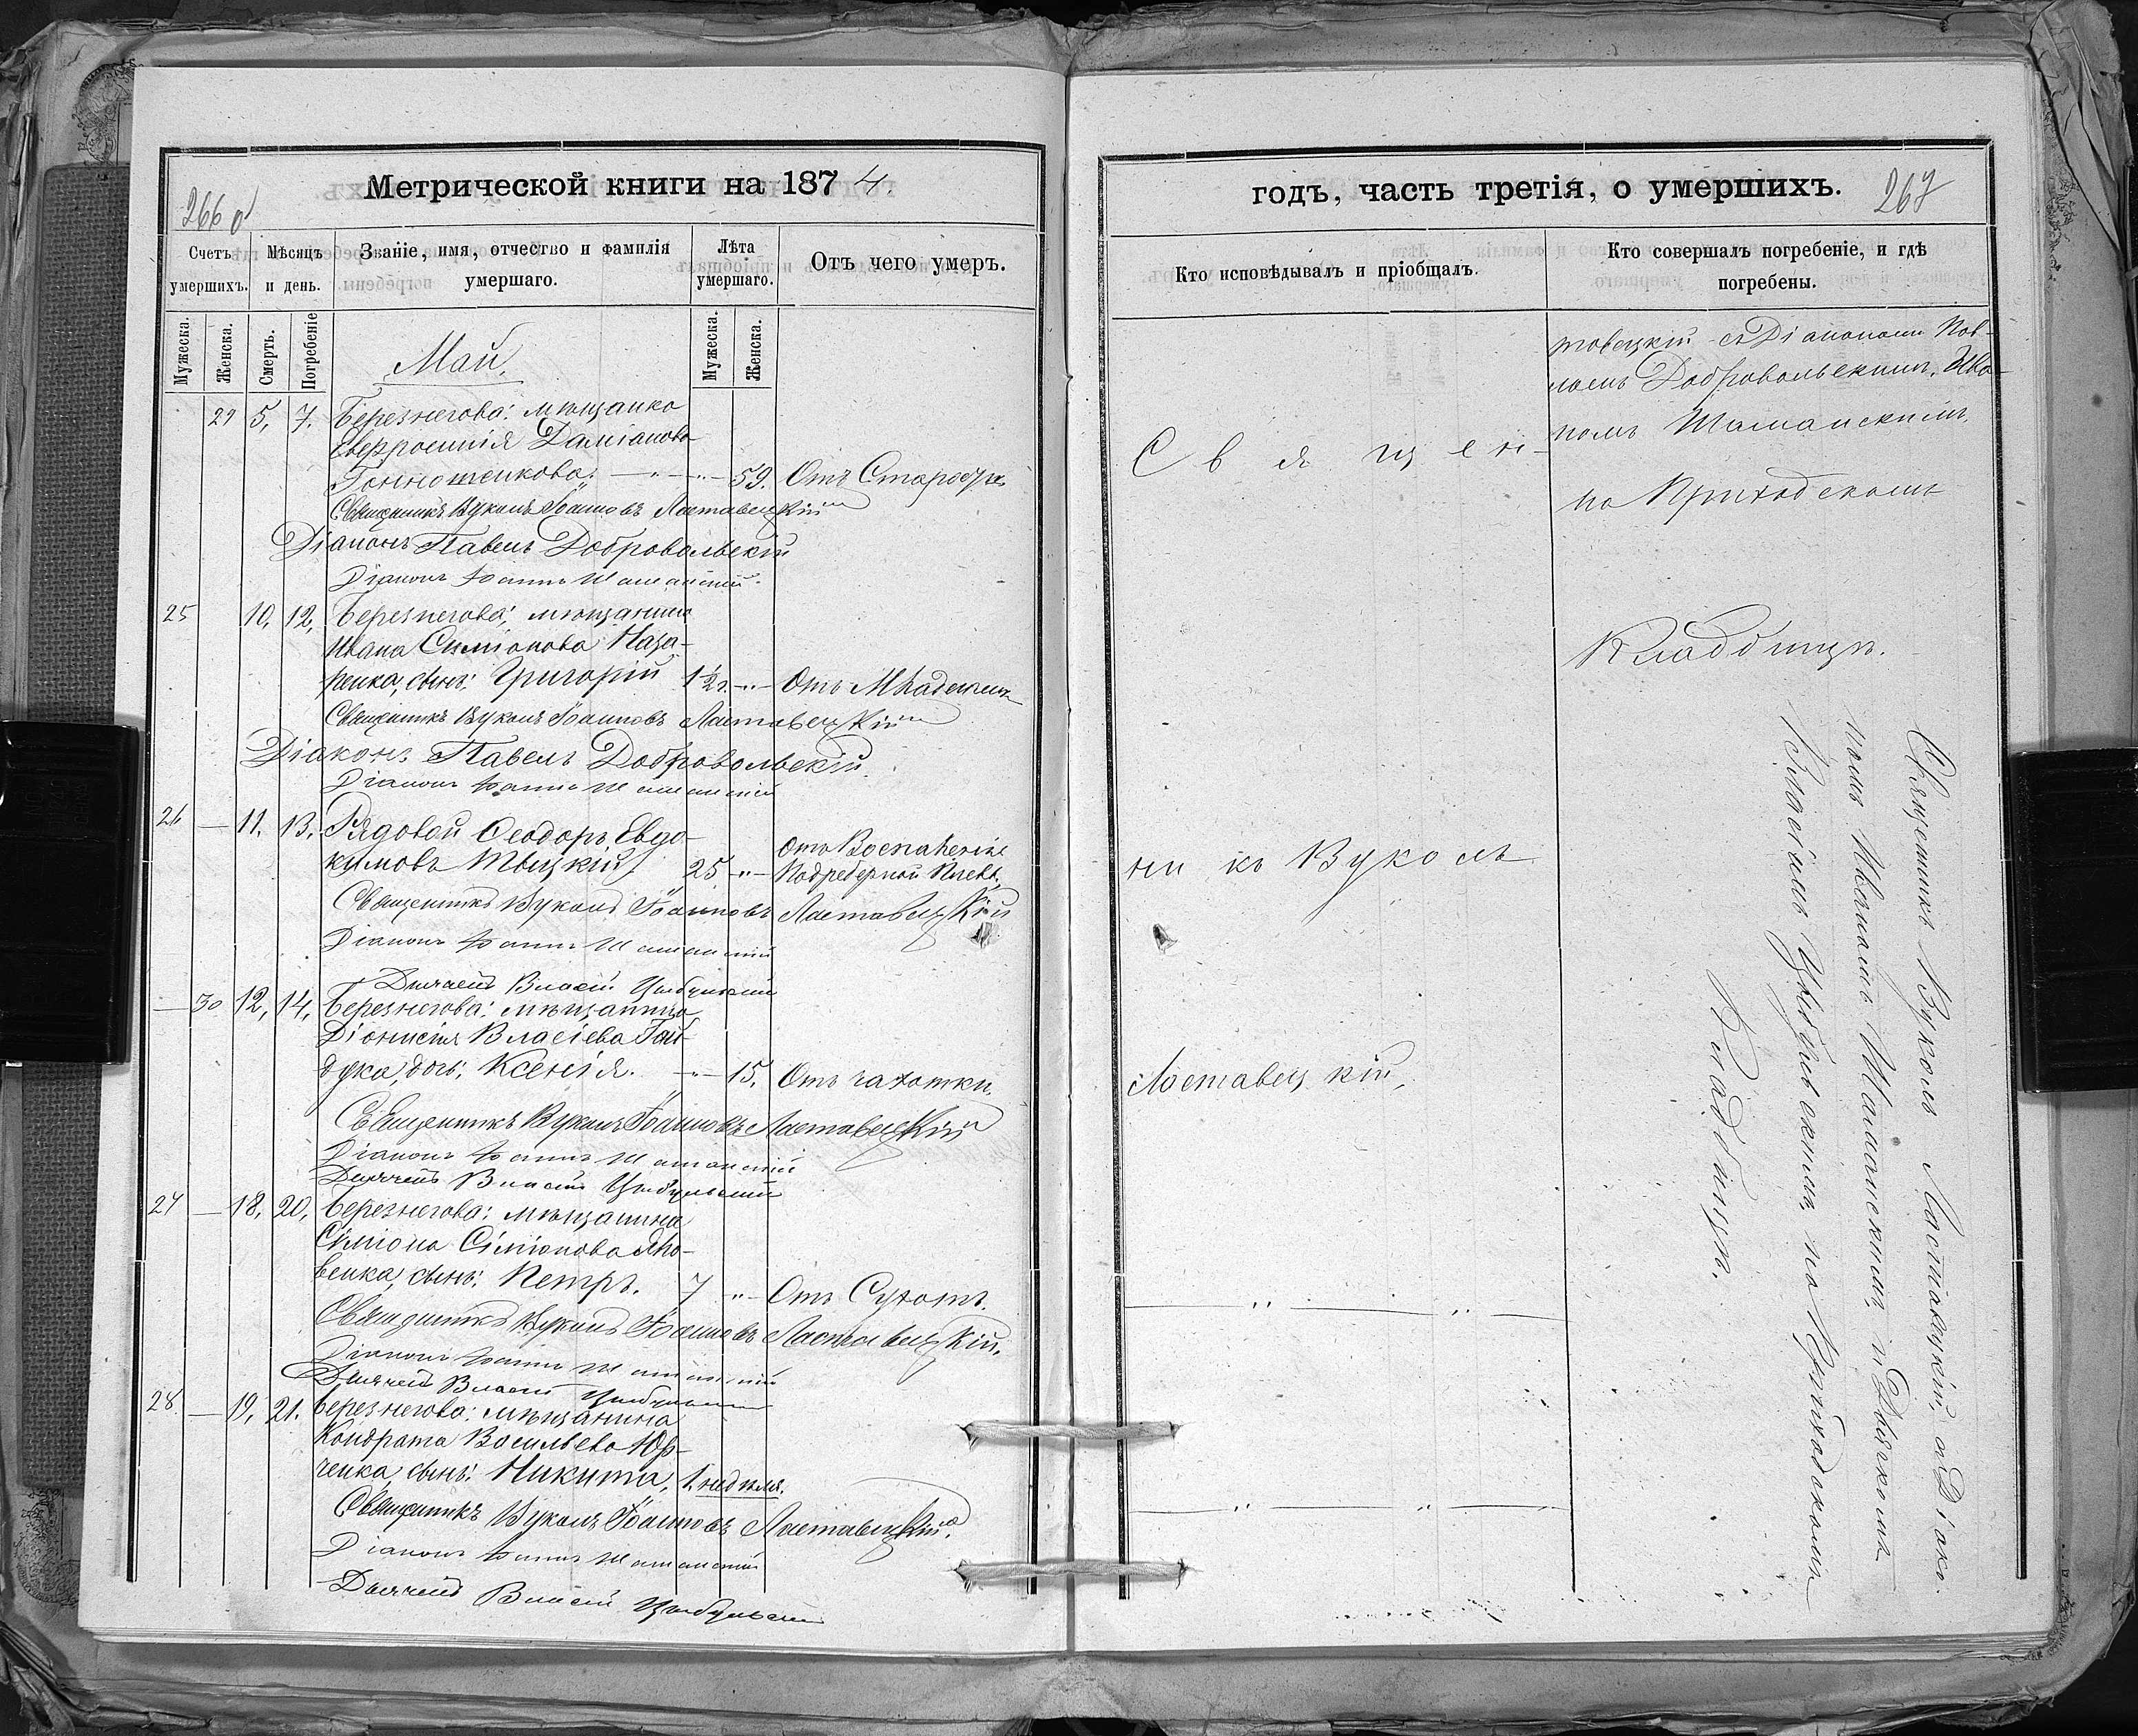 Метрической книги на 1874.
266 об
Счетъ умершихъ.
Мѣсяцъ и день.
Званіе, имя, отчество и фамилія умершаго.
Лѣта умершаго.
Отъ чего умеръ.
Мужеска.
Женска.
Смерть.
Погребеніе
Мужеска.
Женска.
Май,
29 5, 7. Березнегова: мѣщанка
Евфросинія Даміанова
59. Отъ Старости
Священникъ Вуколъ Іоанновъ Лоставецкій
Діаконъ Павелъ Добровольскій
Діаконъ Іоаннъ Шаманскій
25 10, 12, Березнегова: мѣщанина
Ивана Симіонова Наза-
ренка, сынъ: Григорій 1½ г. Отъ Младенч.
Священникъ Вуколъ Іоанновъ Лоставецкій
Діаконъ Павелъ Добровольскій
Діаконъ Іоаннъ Шаманскій
26 11, 13, Рядовой Ѳеодоръ Евдо-
кимовъ 25 Отъ Воспаленія
Подреберной Плевы.
Священникъ Вуколъ Іоанновъ Лоставецкій
Діаконъ Іоаннъ Шаманскій
Дьячекъ Власій Цыбульскій
30 12, 14, Березнегова: мѣщанина
Діонисія Власіева Гай-
дука, дочь: Ксенія. 15, Отъ чахотки.
Священникъ Вуколъ Іоанновъ Лоставецкій
Діаконъ Іоаннъ Шаманскій
Дьячекъ Власій Цыбульскій
27 18, 20, Березнегова: мѣщанина
Симіона Симіонова Яко-
венка, сынъ: Петръ. 7 Отъ Сухотъ.
Священникъ Вуколъ Іоанновъ Лоставецкій.
Діаконъ Іоаннъ Шаманскій
Дьячекъ Власій Цыбульскій
28 19, 21. Березнегова: мѣщанина
Кондрата Васильева Юр-
ченка, сынъ: Никита, 1 недѣля.
Священникъ Вуколъ Іоанновъ Лоставецкій
Діаконъ Іоаннъ Шаманскій
Дьячекъ Власій Цыбульскій
годъ, часть третія, о умершихъ.
267
Кто исповѣдывалъ и пріобщалъ.
Кто совершалъ погребеніе, и гдѣ погребены.
Священ-
никъ Вуколъ
Лоставецкій,
товецкій съ Діаконами Пав-
ломъ Добровольскимъ, Ива-
номъ Шаманскимъ,
на Приходскомъ
Кладбищѣ.
Священникъ Вуколъ Лоставецкій, съ Діако-
номъ Иваномъ Шаманскимъ, и Дьячкомъ
Власіемъ Цыбульскимъ, на Приходскомъ
Кладбищѣ.